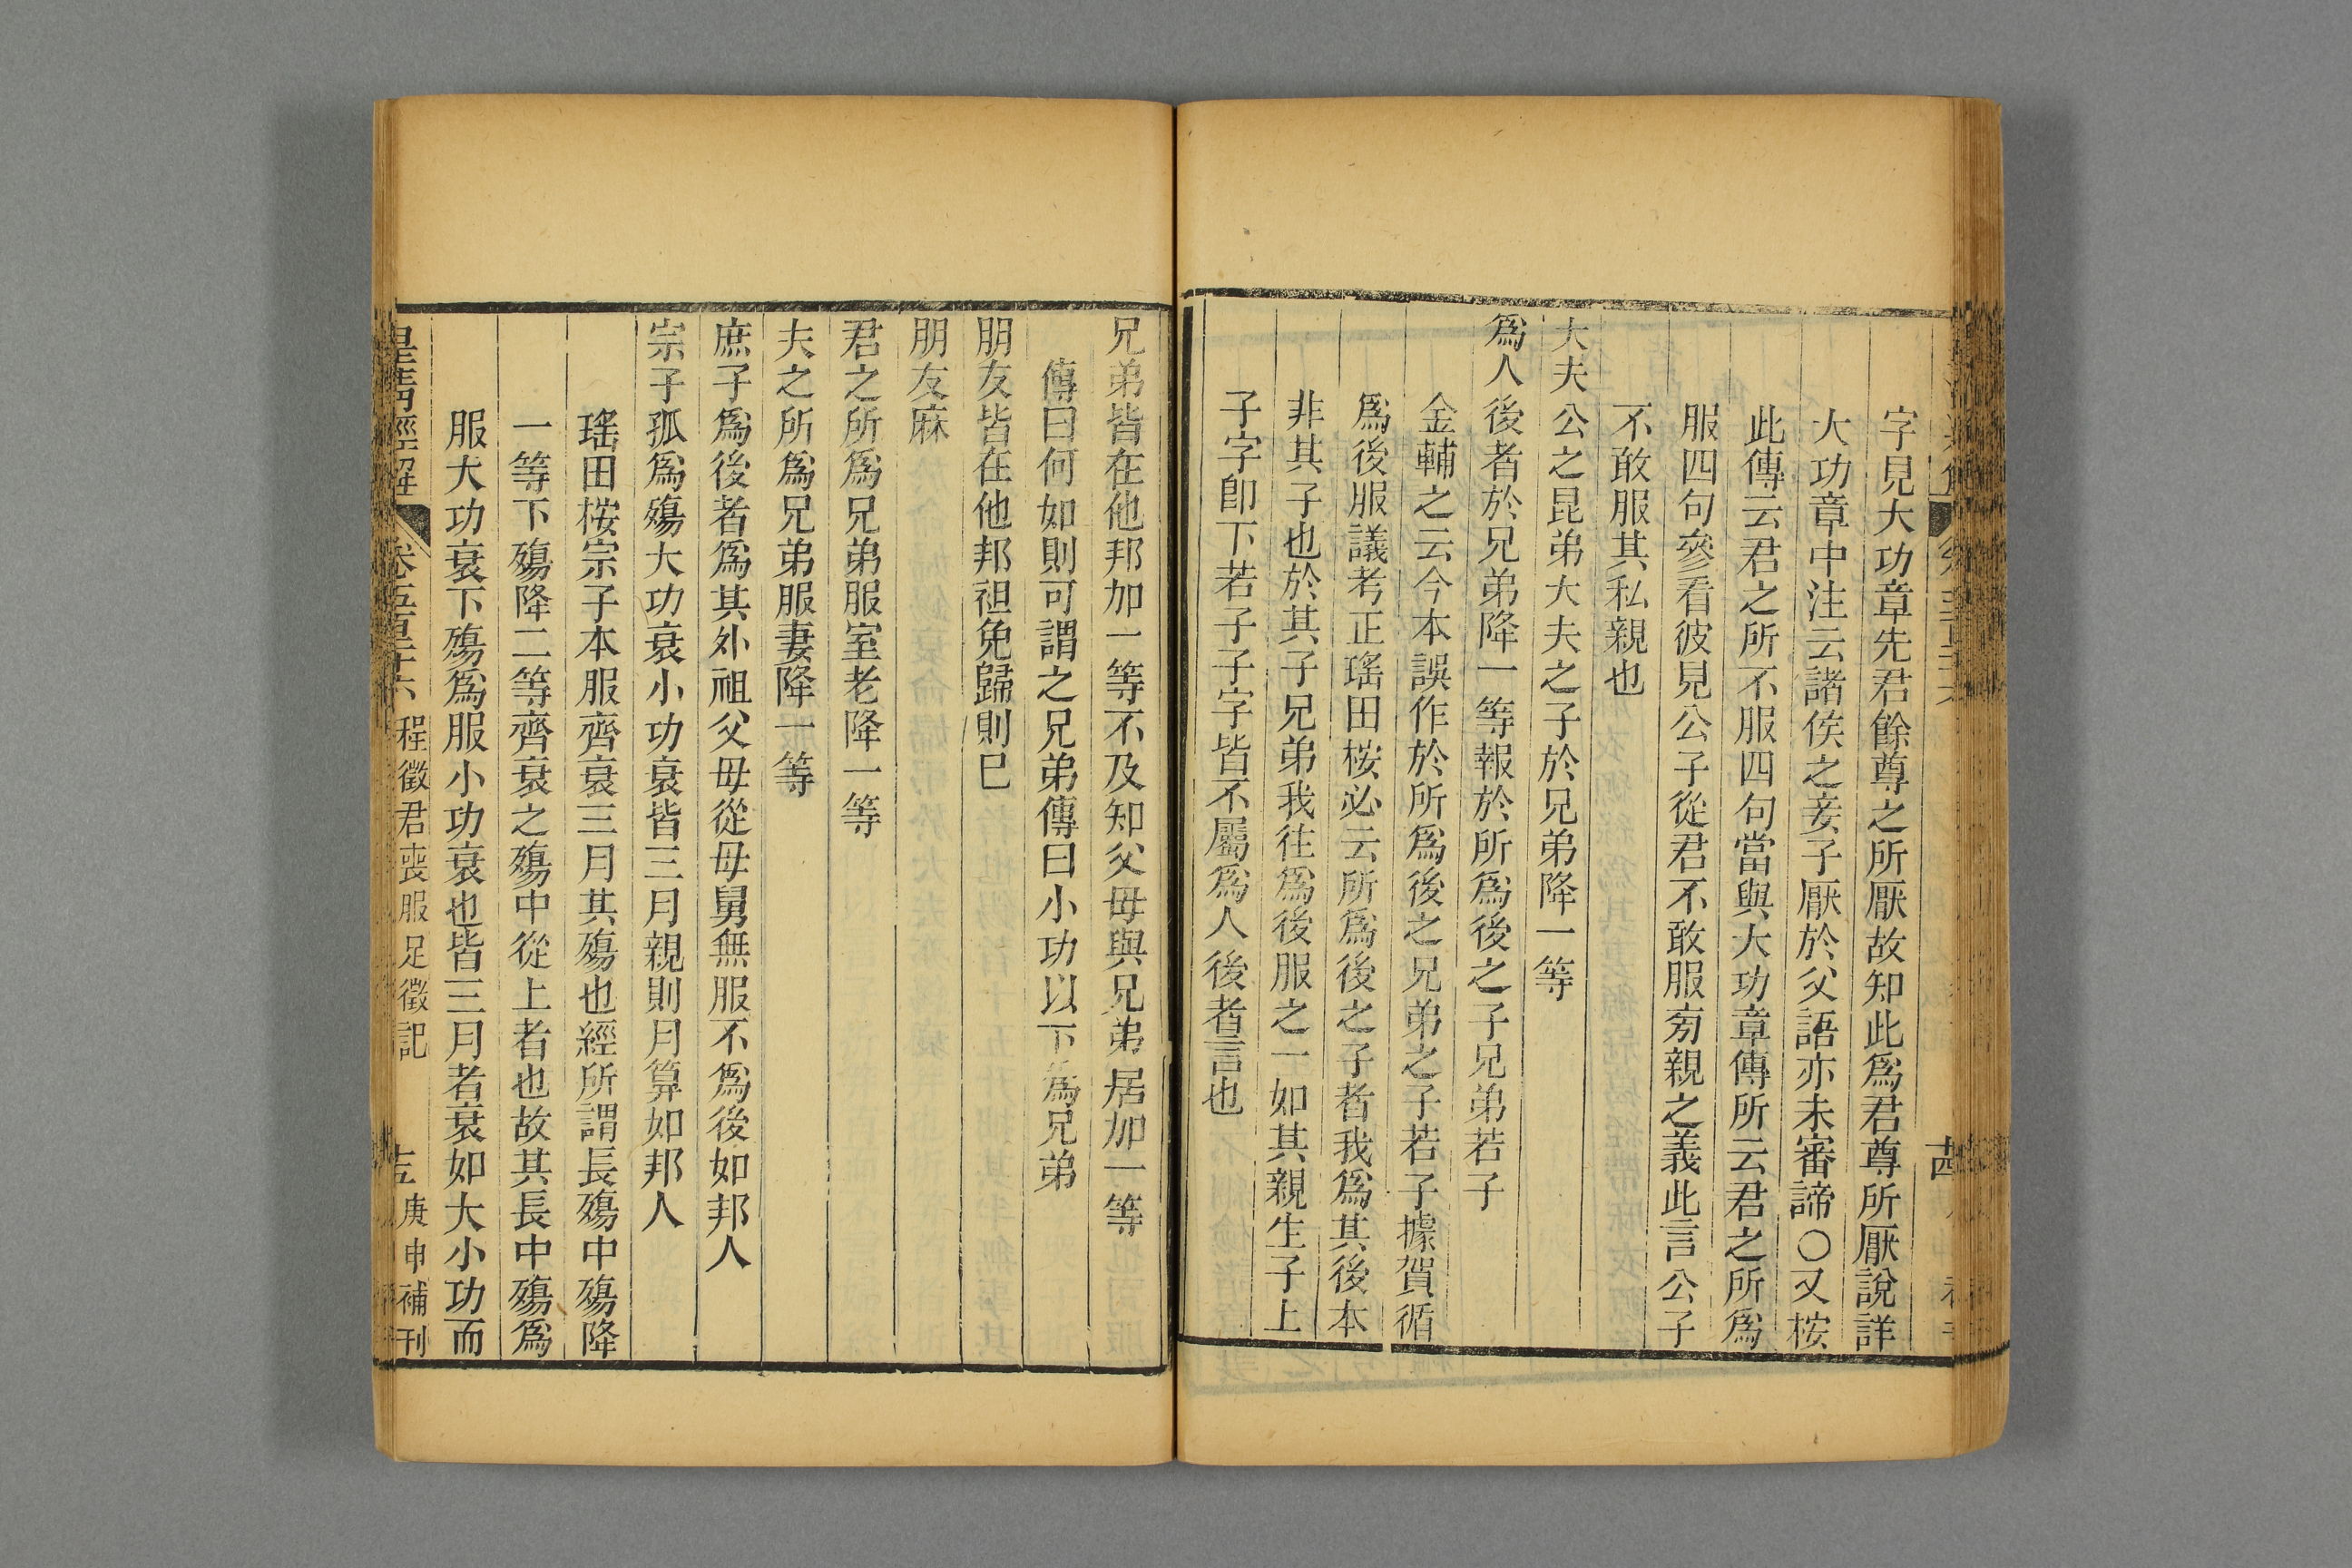 字見大功章先君餘尊之所厭故知此爲君尊所厭說詳
大功章中注云諸侯之妾子厭於父語亦未審諦〇又桉
此傳云君之所不服四句當與大功章傳所云君之所爲
服四句參看彼見公子從君不敢服㫄親之義此言公子
不敢服其私親也
大夫公之昆弟大夫之子於兄弟降一等
爲人後者於兄弟降一等報於所爲後之子兄弟若子
金輔之云今本誤作於所爲後之兄弟之子若子據賀循
爲後服議考正瑤田桉必云所爲後之子者我爲其後本
非其子也於其子兄弟我往爲後服之一如其親生子上
子字卽下若子子字皆不屬爲人後者言也
兄弟皆在他邦加一等不及知父母與兄弟居加一等
傳曰何如則可謂之兄弟傳曰小功以下爲兄弟
朋友皆在他邦袒免歸則已
朋友麻
君之所爲兄弟服室老降一等
夫之所爲兄弟服妻降一等
庶子爲後者爲其外祖父母從母舅無服不爲後如邦人
宗子孤爲殤大功衰小功衰皆三月親則月算如邦人
瑤田桉宗子本服齊衰三月其殤也經所謂長殤中殤降
一等下殤降二等齊衰之殤中從上者也故其長中殤爲
服大功衰下殤爲服小功衰也皆三月者衰如大小功而
皇淸經解 卷五百二十六 程徵君喪服足徵記 庚申補刊